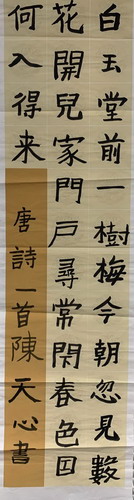 白玉堂前一樹梅今朝忽見數
花開兒家門戶尋常閇春色因
何入得来
唐詩一首陳天心書